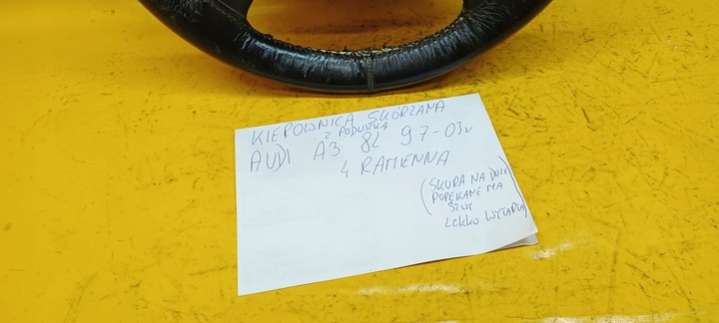 KIEROWNICA SKÓRZANA
Z PODUSZKĄ
AUDI A3 8L 97-03r
4 RAMIENNA
(SKÓRA NA DOLE
POPĘKANE NA
SZWIE
LEKKO WYTARTA)